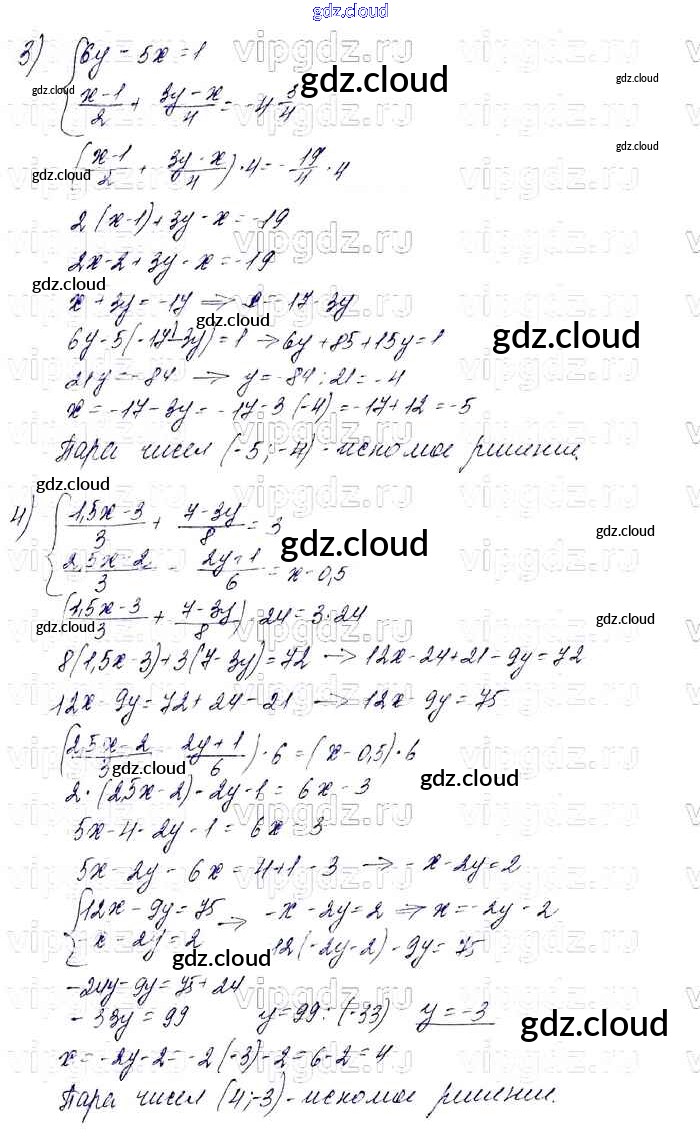 gdz.cloud
3) { 6y - 5x = 1
(x-1)/2 + (3y-x)/4 = -4 3/4
((x-1)/2 + (3y-x)/4) · 4 = -19/4 · 4
2(x-1) + 3y - x = -19
2x - 2 + 3y - x = -19
x + 3y = -17 => x = -17 - 3y
6y - 5(-17-3y) = 1 → 6y + 85 + 15y = 1
21y = -84 → y = -84 : 21 = -4
x = -17 - 3y = -17 - 3(-4) = -17 + 12 = -5
Пара чисел (-5; -4) - искомое решение.
4) { (1,5x-3)/3 + (7-3y)/8 = 3
(2,5x-2)/3 - (2y+1)/6 = x - 0,5
((1,5x-3)/3 + (7-3y)/8) · 24 = 3 · 24
8(1,5x-3) + 3(7-3y) = 72 → 12x - 24 + 21 - 9y = 72
12x - 9y = 72 + 24 - 21 → 12x - 9y = 75
((2,5x-2)/3 - (2y+1)/6) · 6 = (x - 0,5) · 6
2 · (2,5x - 2) - 2y - 1 = 6x - 3
5x - 4 - 2y - 1 = 6x - 3
5x - 2y - 6x = 4 + 1 - 3 → -x - 2y = 2
{ 12x - 9y = 75 → -x - 2y = 2 => x = -2y - 2
-x - 2y = 2 12(-2y-2) - 9y = 75
-24y - 9y = 75 + 24
-33y = 99 y = 99 : (-33) y = -3
x = -2y - 2 = -2(-3) - 2 = 6 - 2 = 4
Пара чисел (4; -3) - искомое решение.